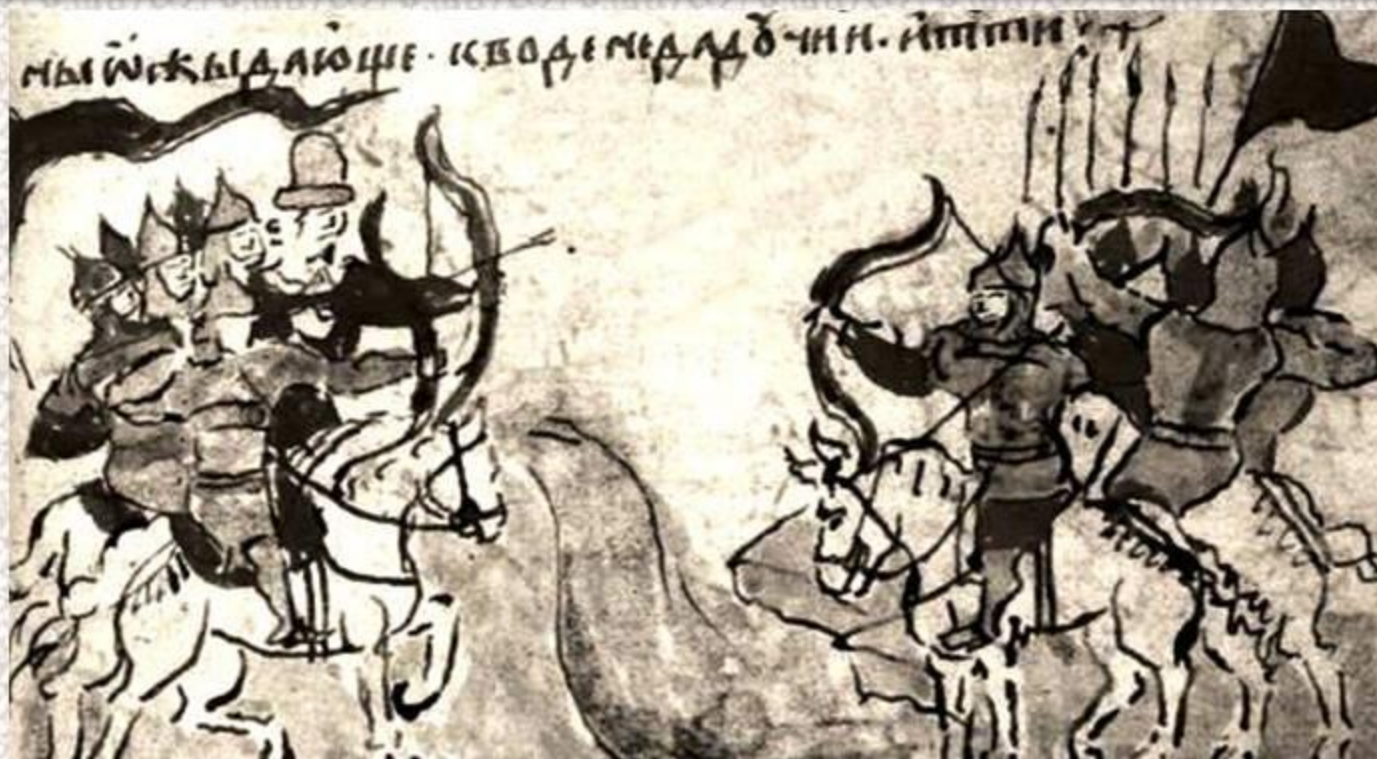 ны ѿжыдающе · к воде не дадꙋчи и · итти